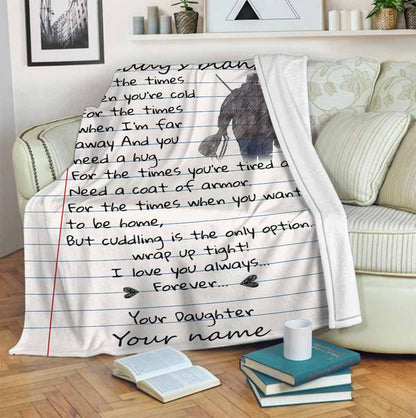 For the times
when you're cold.
For the times
when I'm far
away And you
need a hug
For the times you're tired a
Need a coat of armor.
For the times when you want
to be home,
But cuddling is the only option.
wrap up tight!
I love you always...
Forever...
Your Daughter
Your name